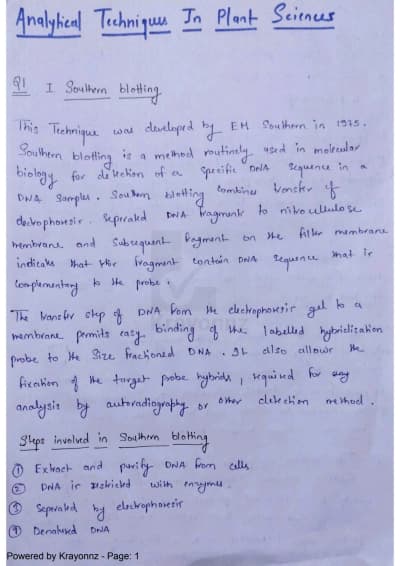 Analytical Techniques In Plant Sciences
Q1 I Southern blotting
This Technique was developed by EM Southern in 1975.
Southern blotting is a method routinely used in molecular
biology for detection of a specific DNA sequence in a
DNA samples. Southern blotting combines transfer of
electrophoresis. Seperated DNA fragments to nitrocellulose
membrane and subsequent fragment on the filter membrane
indicates that the fragment contain DNA sequence that is
complementary to the probe.
The transfer step of DNA from the electrophoresis gel to a
membrane permits easy binding of the labelled hybridization
probe to the size fractioned DNA. It also allows the
fixation of the target probe hybrids, required for any
analysis by autoradiography or other detection method.
Steps involved in Southern blotting
① Extract and purify DNA from cells
② DNA is restricted with enzymes
③ Seperated by electrophoresis
④ Denatured DNA
Powered by Krayonnz - Page: 1